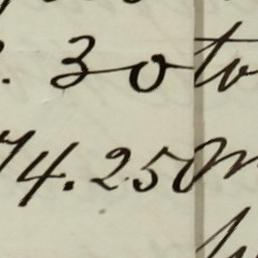 . 30 to
74.250